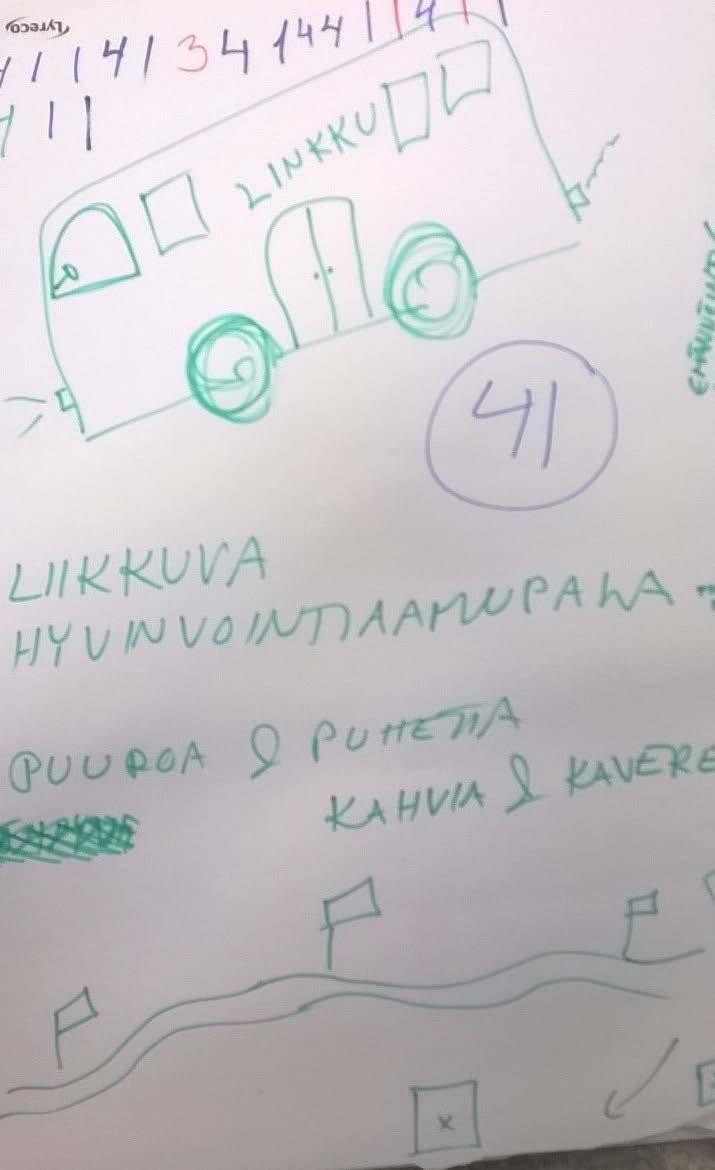 Lyreco
1 1 4 1 3 4 1 4 4 1 1 4 1 1
1 1
LINKKU
41
LIIKKUVA
HYVINVOINTIAAMUPALA
PUUROA & PUHETTA
KAHVIA & KAVERE